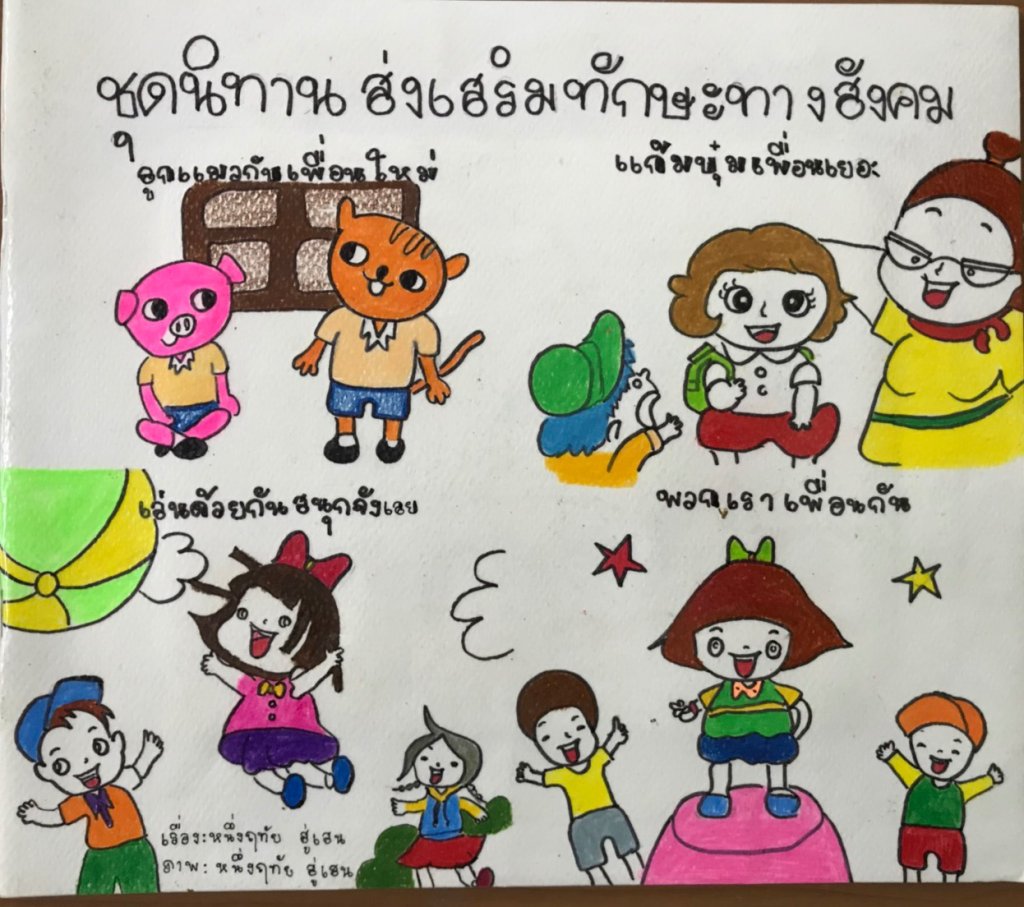 ชุดนิทาน ส่งเสริมทักษะทางสังคม
ลูกแมวกับเพื่อนใหม่
แก้มนุ่มเพื่อนเยอะ
เล่นด้วยกันสนุกจังเลย
พวกเราเพื่อนกัน
เรื่อง:หนึ่งฤทัย สู่เสน
ภาพ: หนึ่งฤทัย สู่เสน